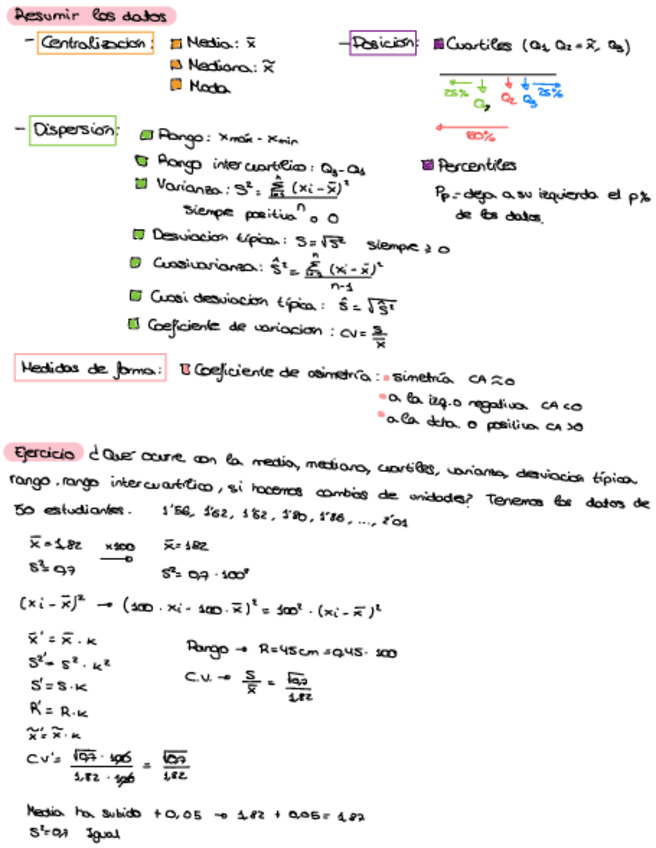 Resumir los datos
- Centralización: Media: x̄
Mediana: x̃
Moda
- Posición: Cuartiles (Q1, Q2 = x̃, Q3)
25% Q1 Q2 Q3 25%
50%
Percentiles
Pp = deja a su izquierda el p%
de los datos.
- Dispersión: Rango: xmáx - xmin
Rango intercuartílico: Q3 - Q1
Varianza: S² = Σ (xi - x̄)² / n
siempre positiva o 0
Desviación típica: S = √S² siempre ≥ 0
Cuasivarianza: Ŝ² = Σ (xi - x̄)² / n-1
Cuasi desviación típica: Ŝ = √Ŝ²
Coeficiente de variación: CV = S / x̄
Medidas de forma: Coeficiente de asimetría: simetría CA ≈ 0
a la izq. o negativa CA < 0
a la dcha. o positiva CA > 0
Ejercicio ¿Qué ocurre con la media, mediana, cuartiles, varianza, desviación típica
rango, rango intercuartílico, si hacemos cambios de unidades? Tenemos los datos de
50 estudiantes. 1'56, 1'62, 1'62, 1'80, 1'86, ..., 2'01
x̄ = 1,82 x100 → x̄ = 182
S² = 0,7 S² = 0,7 · 100²
(xi - x̄)² → (100 · xi - 100 · x̄)² = 100² · (xi - x̄)²
x̄' = x̄ · k
S²' = S² · k²
S' = S · k
R' = R · k
x̃' = x̃ · k
CV' = √0,7 · 100 / 1,82 · 100 = √0,7 / 1,82
Rango → R = 45cm = 0,45 · 100
C.V. → S / x̄ = √0,7 / 1,82
Media ha subido + 0,05 → 1,82 + 0,05 = 1,87
Igual